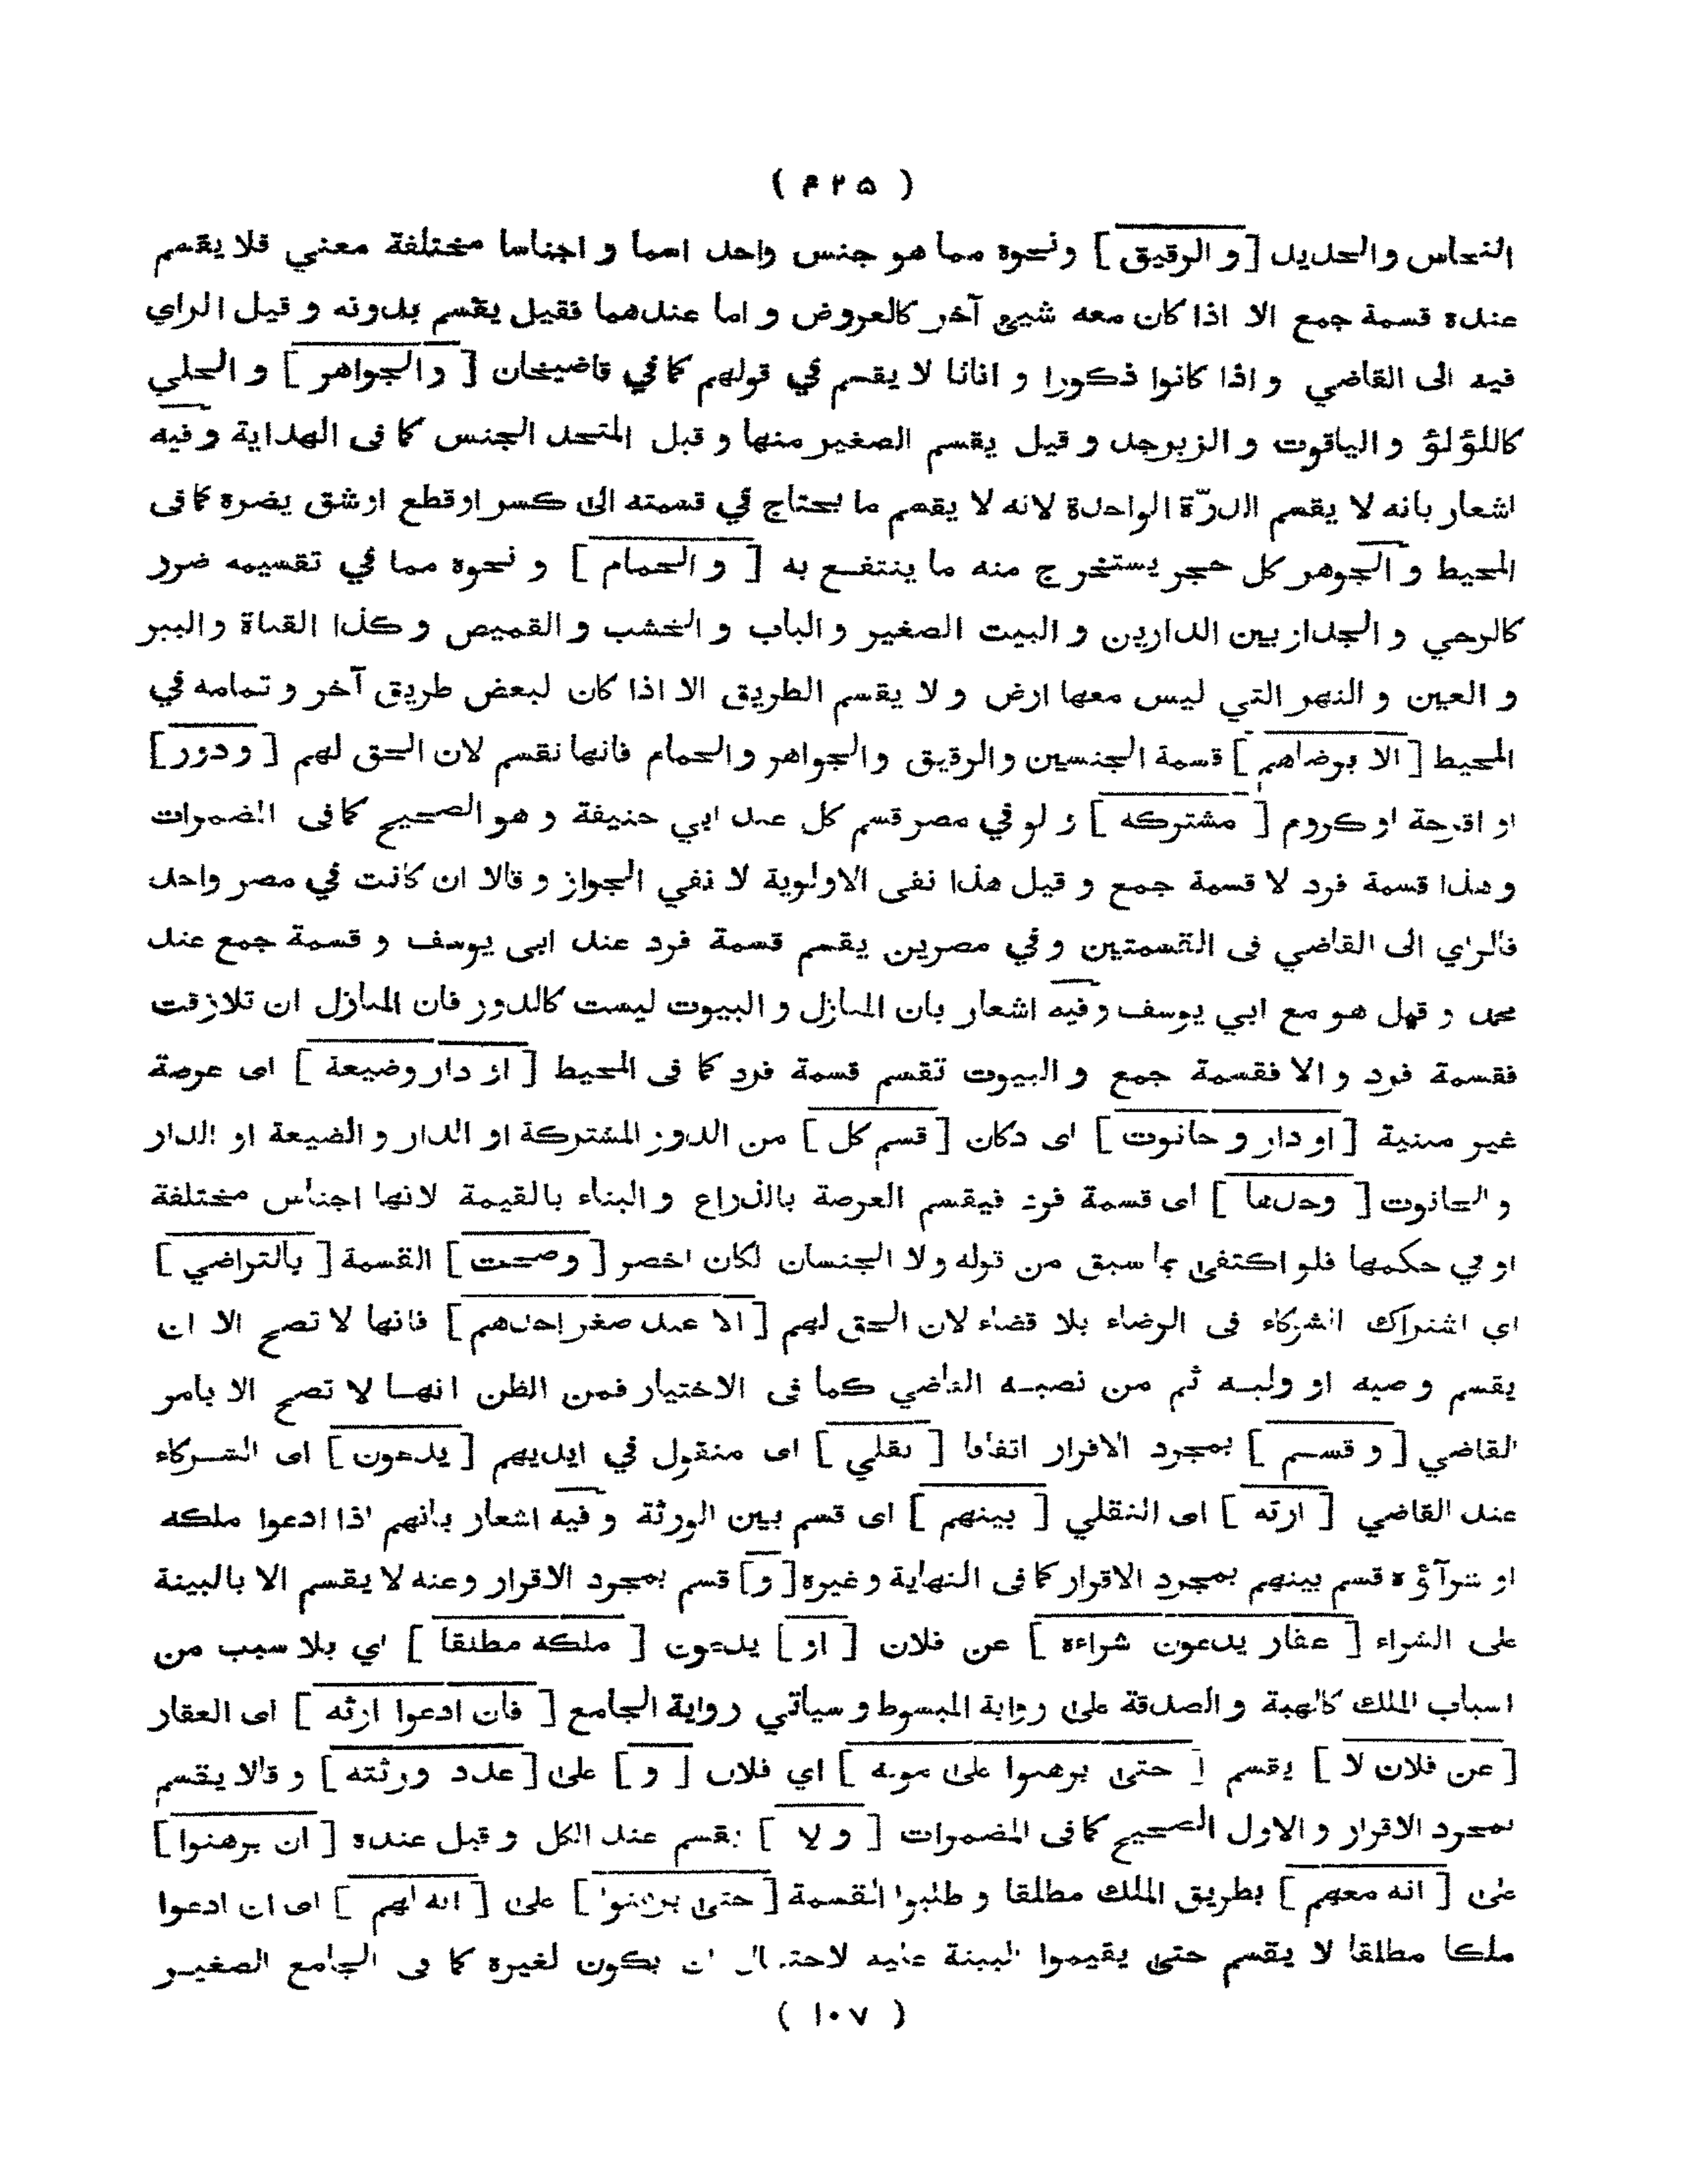 ( ۴۲۵ )
النحاس والحديد [و الرقيق] ونحوه مما هو جنس واحد اسما و اجناسا مختلفة معني فلا يقسم
عنده قسمة جمع الا اذا كان معه شيئ آخر كالعروض و اما عندهما فقيل يقسم بدونه و قيل الراي
فيه الى القاضي و اذا كانوا ذكورا و اناثا لا يقسم في قولهم كما في قاضيخان [ و الجواهر ] و الحلي
كاللؤلؤ و الياقوت و الزبرجد و قيل يقسم الصغير منها و قيل المتحد الجنس كما فى الهداية و فيه
اشعار بانه لا يقسم الدرّة الواحدة لانه لا يقسم ما يحتاج في قسمته الى كسر او قطع او شق يضره كما فى
المحيط و الجوهر كل حجر يستخرج منه ما ينتفع به [ و الحمام ] و نحوه مما في تقسيمه ضرر
كالرحي و الجدار بين الدارين و البيت الصغير و الباب و الخشب و القميص و كذا القناة و البير
و العين و النهر التي ليس معها ارض و لا يقسم الطريق الا اذا كان لبعض طريق آخر و تمامه في
المحيط [ الا برضاهم ] قسمة الجنسين والرقيق والجواهر والحمام فانها تقسم لان الحق لهم [ ودور ]
او اقرحة او كروم [ مشتركه ] و لو في مصر قسم كل عند ابي حنيفة و هو الصحيح كما فى المضمرات
و هذا قسمة فرد لا قسمة جمع و قيل هذا نفى الاولوية لا نفي الجواز و قالا ان كانت في مصر واحد
فالراي الى القاضي فى القسمتين و في مصرين يقسم قسمة فرد عند ابى يوسف و قسمة جمع عند
محمد و قيل هو مع ابي يوسف و فيه اشعار بان المنازل و البيوت ليست كالدور فان المنازل ان تلازقت
فقسمة فرد و الا فقسمة جمع و البيوت تقسم قسمة فرد كما فى المحيط [ او دار وضيعة ] اى عرصة
غير مبنية [ او دار و حانوت ] اى دكان [ قسم كل ] من الدور المشتركة او الدار و الضيعة او الدار
و الحانوت [ وحدها ] اى قسمة فرد فيقسم العرصة بالذراع و البناء بالقيمة لانها اجناس مختلفة
او في حكمها فلو اكتفى بما سبق من قوله و لا الجنسان لكان اخصر [ وصحت ] القسمة [ بالتراضي ]
اي اشتراك الشركاء فى الرضاء بلا قضاء لان الحق لهم [ الا عند صغر احدهم ] فانها لا تصح الا ان
يقسم وصيه او وليه ثم من نصبه القاضي كما فى الاختيار فمن الظن انها لا تصح الا بامر
القاضي [ و قسم ] بمجرد الاقرار اتفاقا [ نقلي ] اى منقول في ايديهم [ يدعون ] اى الشركاء
عند القاضي [ ارثه ] اى النقلي [ بينهم ] اى قسم بين الورثة و فيه اشعار بانهم اذا ادعوا ملكه
او شرآؤه قسم بينهم بمجرد الاقرار كما فى النهاية و غيره [ و ] قسم بمجرد الاقرار وعنه لا يقسم الا بالبينة
على الشراء [ عقار يدعون شراءه ] عن فلان [ او ] يدعون [ ملكه مطلقا ] اي بلا سبب من
اسباب الملك كالهبة و الصدقة على رواية المبسوط و سيأتي رواية الجامع [ فان ادعوا ارثه ] اى العقار
[ عن فلان لا ] يقسم [ حتى برهنوا على موته ] اي فلان [ و ] على [ عدد ورثته ] و قالا يقسم
بمجرد الاقرار و الاول الصحيح كما فى المضمرات [ و لا ] يقسم عند الكل و قيل عنده [ ان برهنوا ]
على [ انه معهم ] بطريق الملك مطلقا و طلبوا القسمة [ حتى برهنوا ] على [ انه لهم ] اى ان ادعوا
ملكا مطلقا لا يقسم حتى يقيموا البينة عليه لاحتمال ان يكون لغيره كما فى الجامع الصغير
( ١٠٧ )